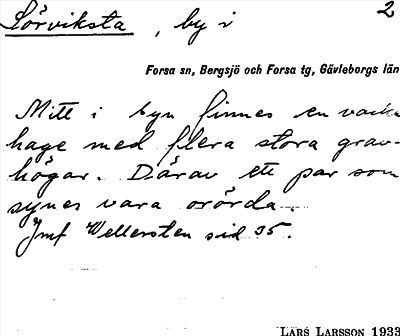 Sörviksta, by i 2
Forsa sn, Bergsjö och Forsa tg, Gävleborgs län
Mitt i byn finnes en vacker
hage med flera stora grav-
högar. Därav ett par som
synes vara orörda.
Jmf Wellersten sid 35.
LARS LARSSON 1933